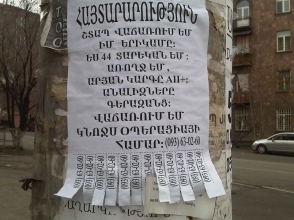 ՀԱՅՏԱՐԱՐՈՒԹՅՈՒՆ
ՇՏԱՊ ՎԱՃԱՌՈՒՄ ԵՄ
ԻՄ ԵՐԻԿԱՄԸ:
ԵՍ 44 ՏԱՐԵԿԱՆ ԵՄ,
ԱՌՈՂՋ ԵՄ,
ԱՐՅԱՆ ԿԱՐԳԸ AII+;
ԱՆԱԼԻԶՆԵՐԸ
ԳԵՐԱԶԱՆՑ:
ՎԱՃԱՌՈՒՄ ԵՄ
ԿՆՈՋՍ ՕՊԵՐԱՑԻԱՅԻ
ՀԱՄԱՐ: (093) 63-02-60
(093) 63-02-60 (093) 63-02-60 (093) 63-02-60 (093) 63-02-60 (093) 63-02-60 (093) 63-02-60 (093) 63-02-60 (093) 63-02-60